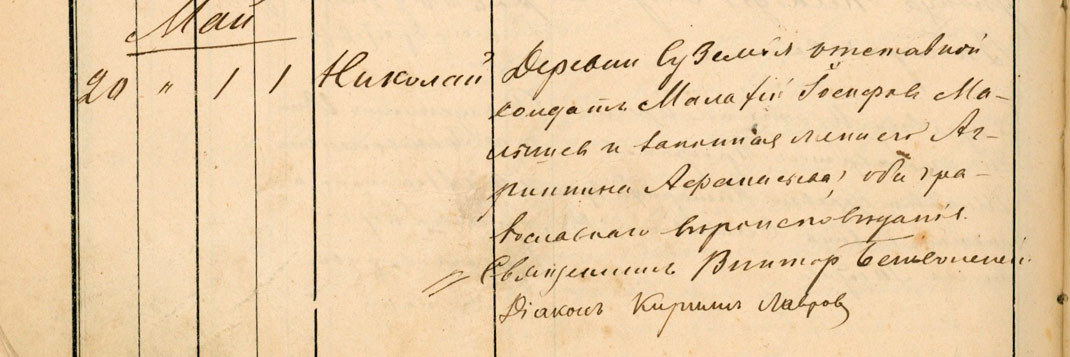 Май
20 " 1 1 Николай Деревни Суземья отставной
солдатъ Малафій Іосифовъ Ма-
и законная жена его Аг-
рипина Афанасьева, оба пра-
вославнаго вѣроисповѣданія.
Священникъ Викторъ
Діаконъ Кириллъ Лавровъ